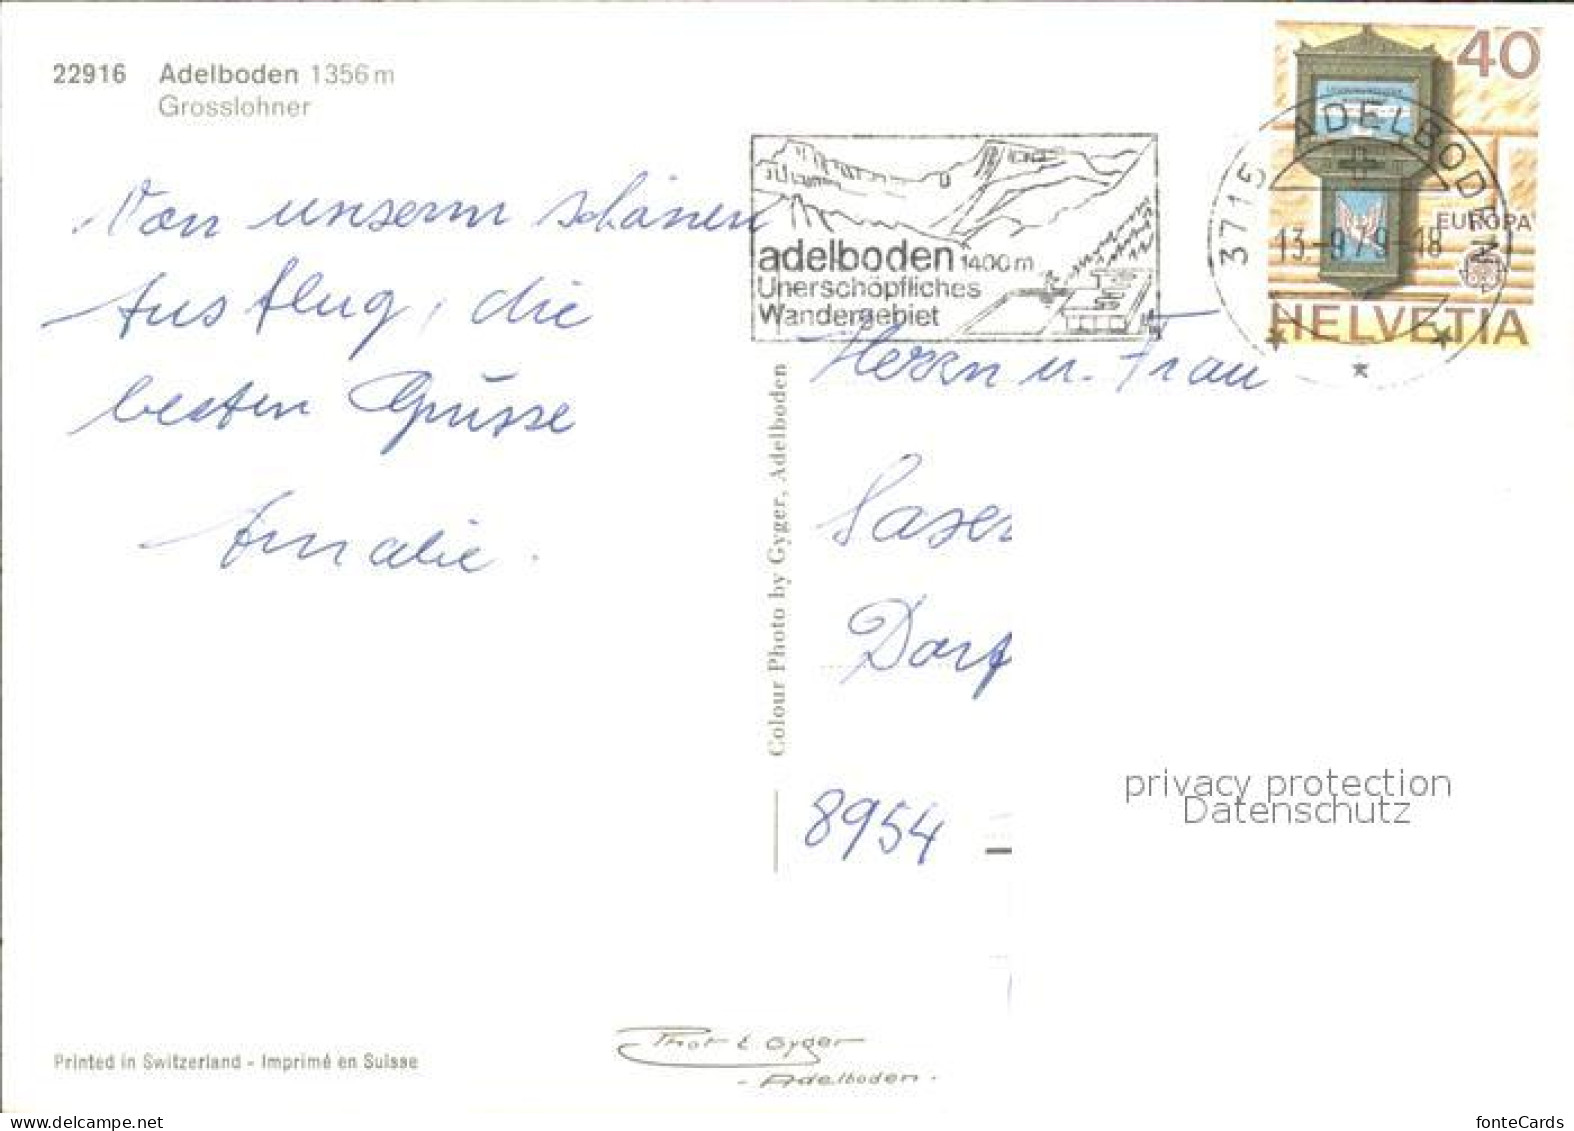 22916 Adelboden 1356 m
Grosslohner
Von unserm schönen
Ausflug, die
besten Grüsse
Amalie.
adelboden 1400 m
Unerschöpfliches
Wandergebiet
3715 ADELBODEN
13.-9.79-18
40
EUROPA
HELVETIA
Herrn u. Frau
Saxer
Dorf
8954
Colour Photo by Gyger, Adelboden
privacy protection
Datenschutz
Printed in Switzerland - Imprimé en Suisse
Phot E. Gyger
- Adelboden -
www.delcampe.net
fonteCards